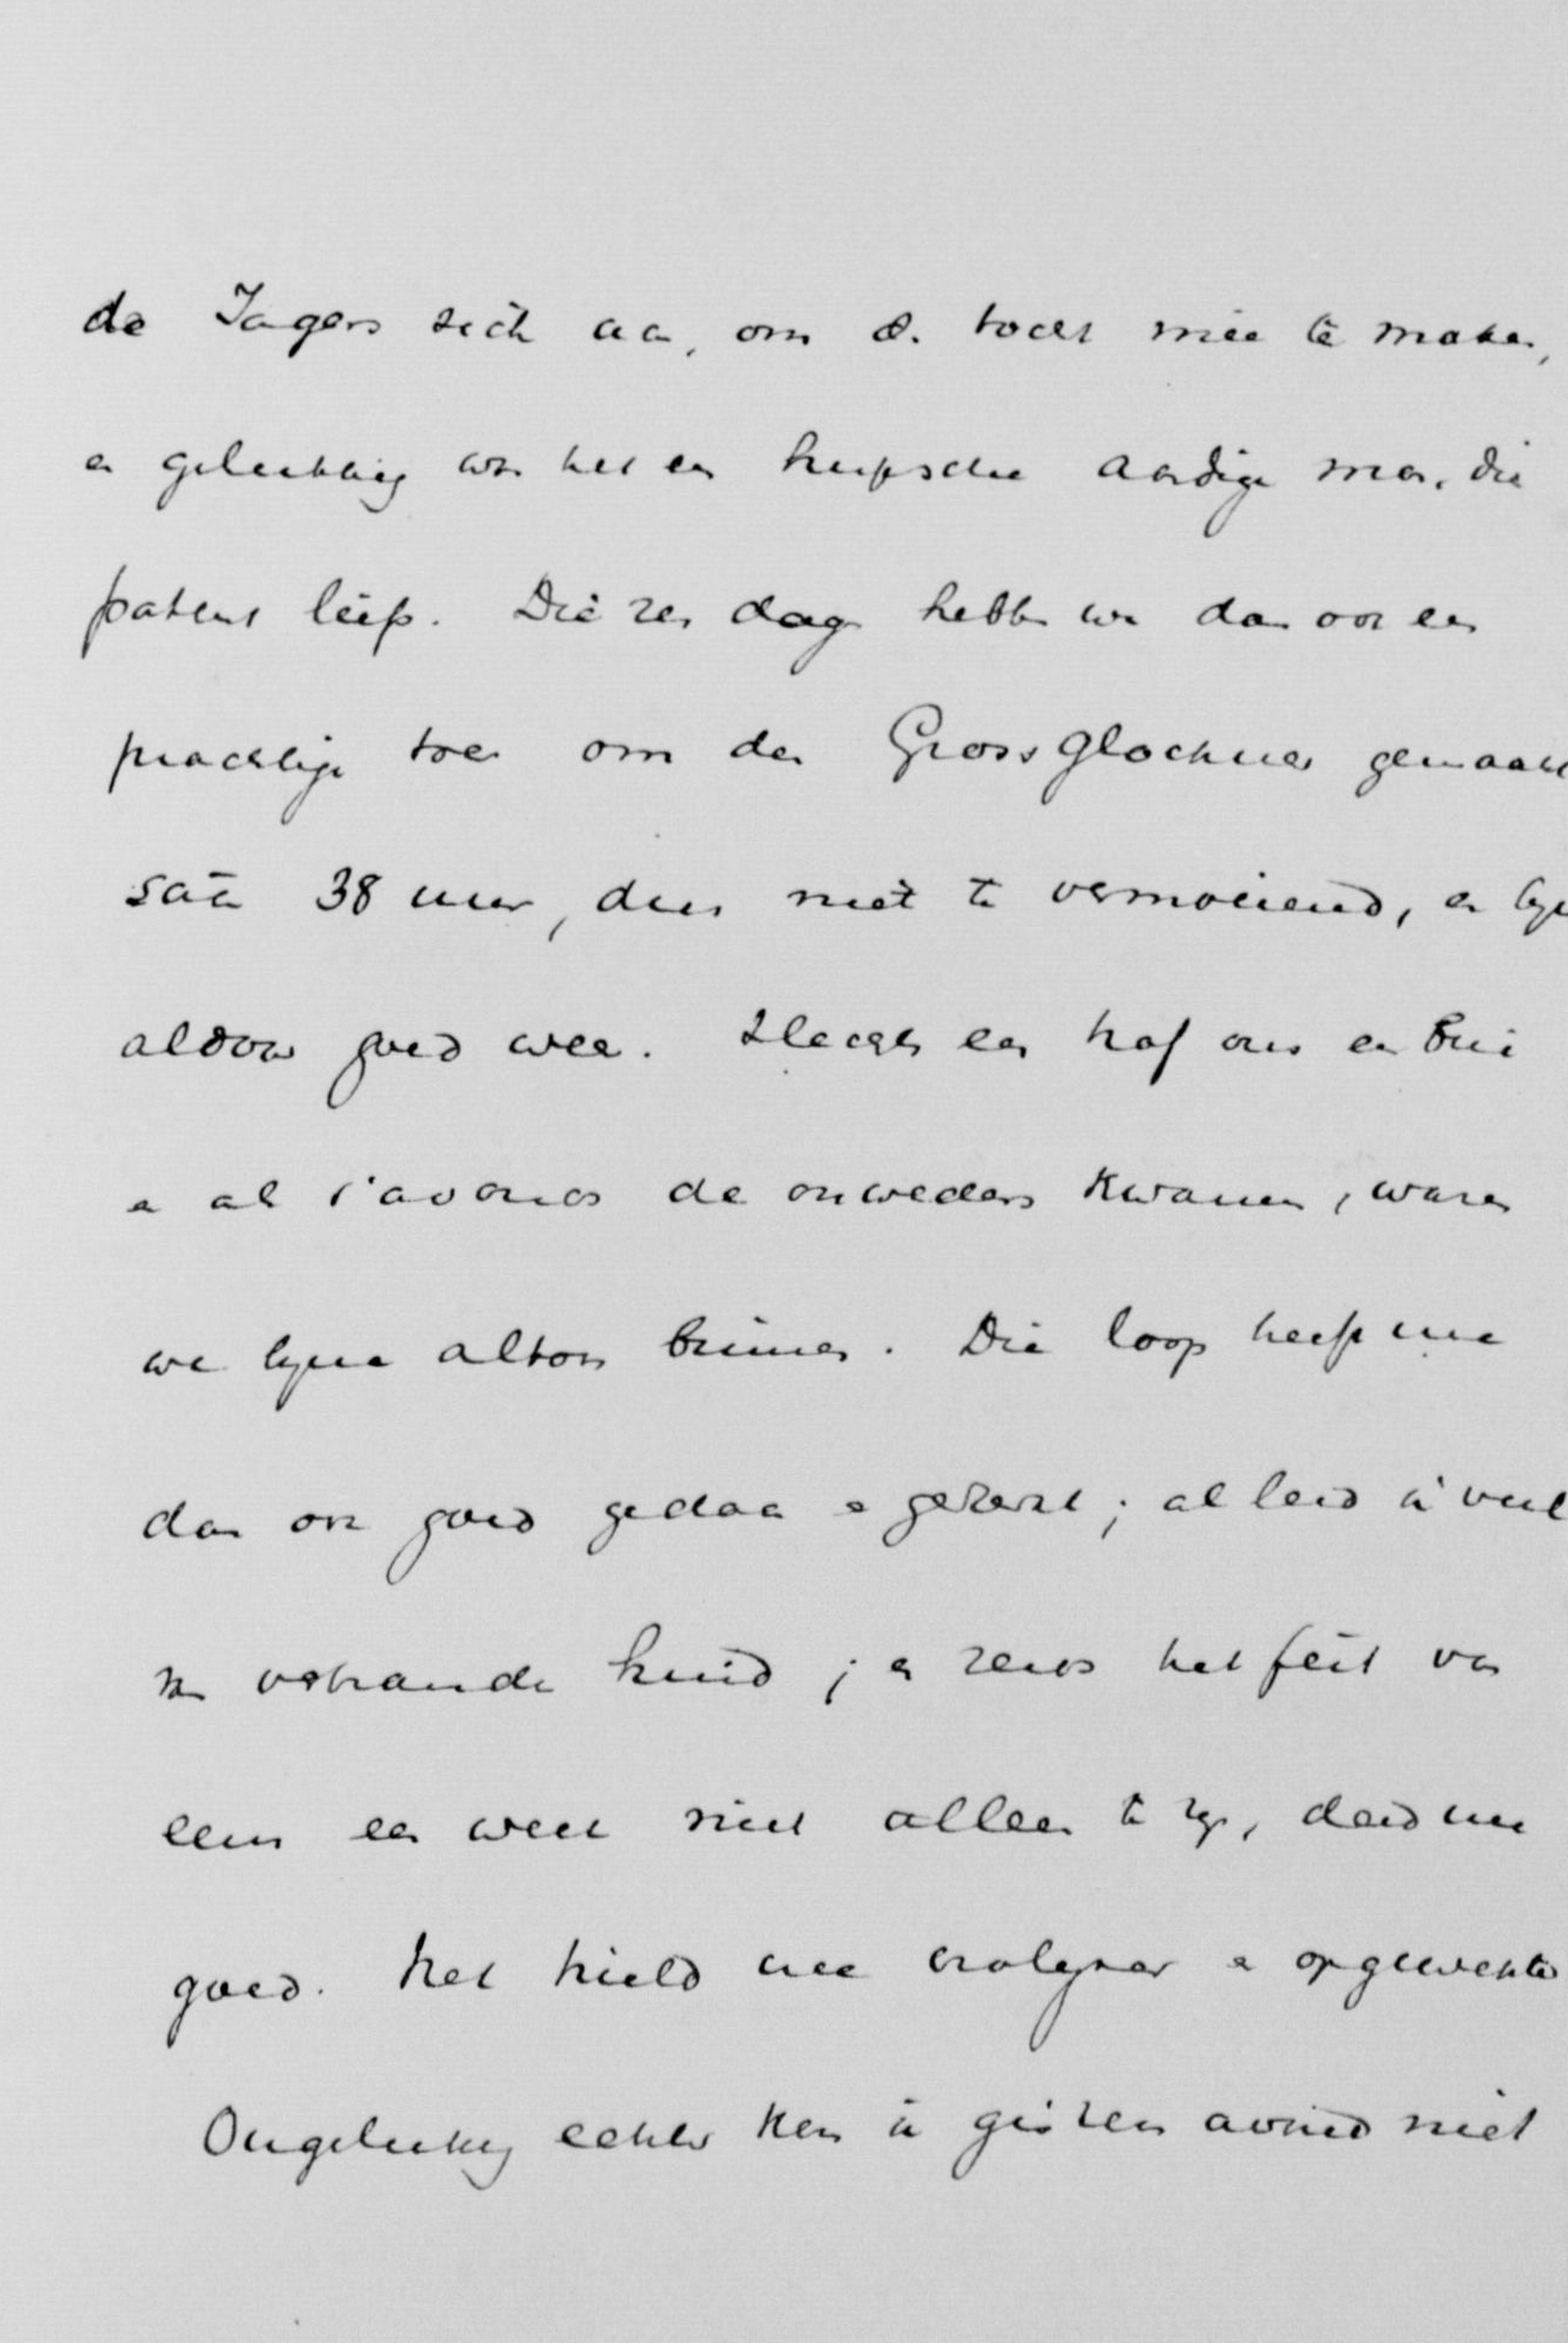 de Jagers zich aan, om de tocht mee te maken,
en gelukkig was het een heupsche aardige man, die
patent liep. Die zes dagen hebben we dan ook een
prachtige toer om den Grossglockner gemaakt
38 uur, dus niet te vermoeiend, en bijna
aldoor goed weer. Slechts een trof ons een bui
en als 's avonds de onweders kwamen, waren
we bijna altoos binnen. Die loop heeft me
dan ook goed gedaan en gesterkt; al leed ik veel
verbrande huid; en reeds het feit van
eens een week niet alleen te zijn, deed me
goed. Het hield me vrolijker en opgewekter
Ongelukkig echter kon ik gisteren avond niet